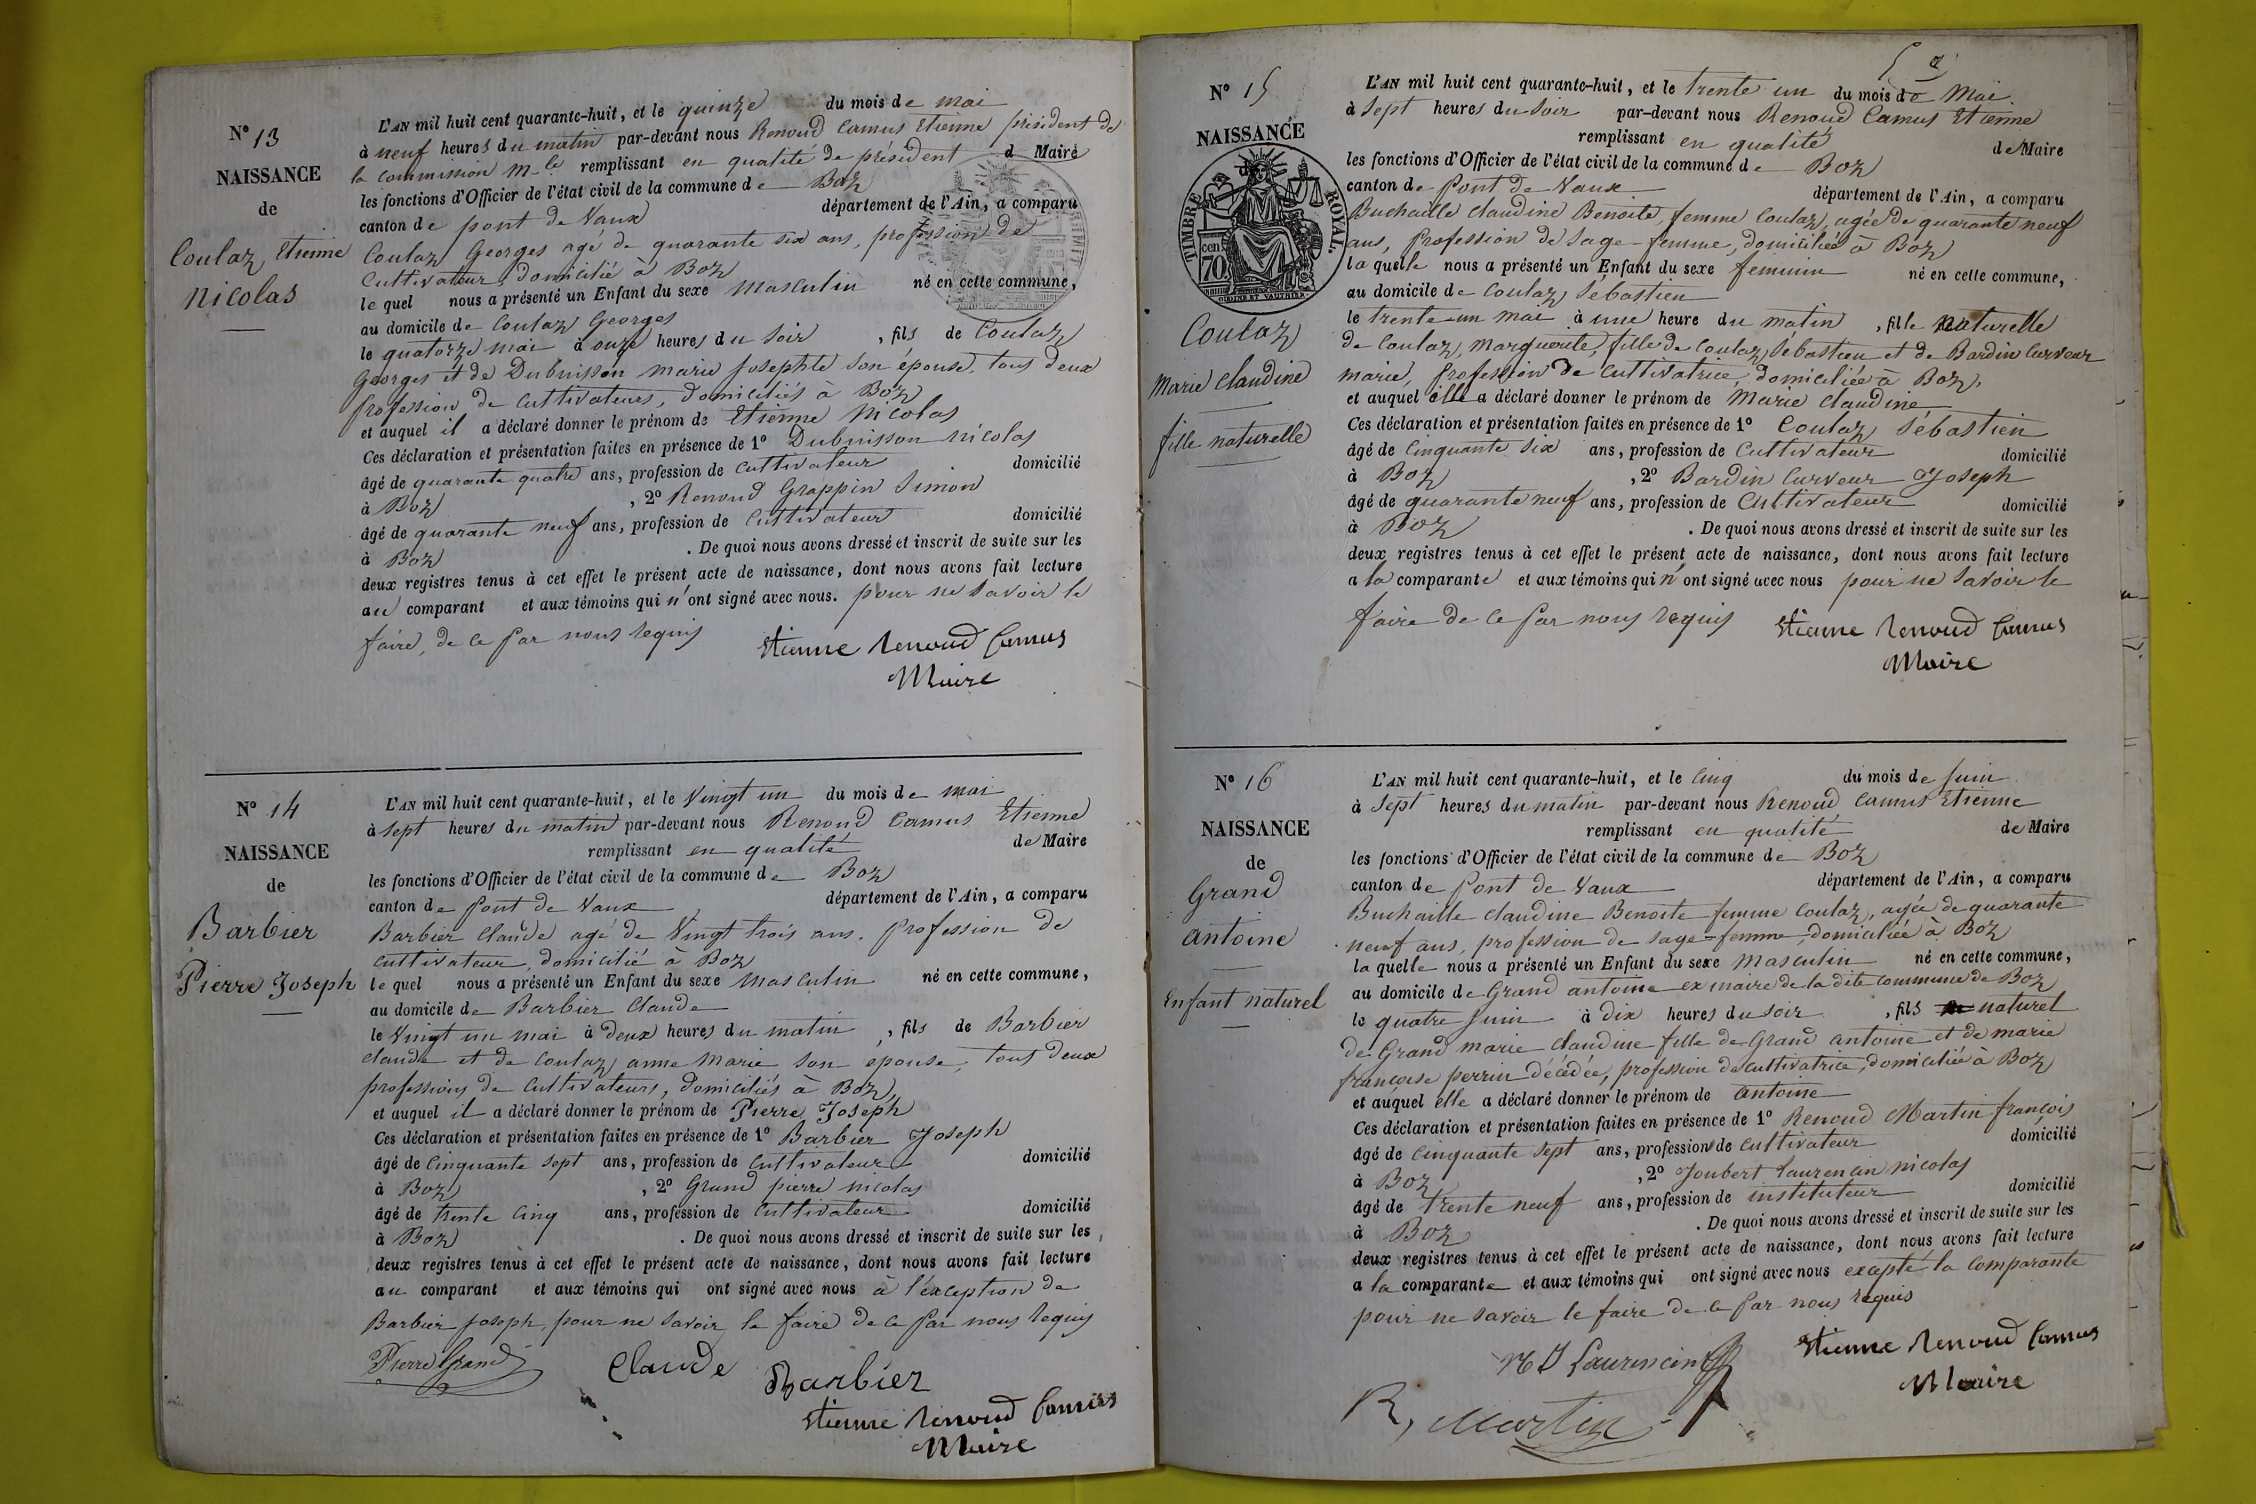 N° 13
NAISSANCE
de
Coulaz, Etienne
Nicolas
L'AN mil huit cent quarante-huit, et le quinze du mois de mai
à neuf heures du matin par-devant nous Renoud Camus Etienne président de
la commission m-le remplissant en qualité de président d Maire
les fonctions d'Officier de l'état civil de la commune de Boz
canton de pont de Vaux département de l'Ain, a comparu
Coulaz Georges agé de quarante six ans, profession de
Cultivateur, domicilié à Boz
le quel nous a présenté un Enfant du sexe masculin né en cette commune,
au domicile de Coulaz Georges
le quatorze mai à onze heures du soir , fils de Coulaz
Georges et de Dubuisson marie josephte son épouse, tous deux
profession de cultivateurs, domiciliés à Boz
et auquel il a déclaré donner le prénom de Etienne Nicolas
Ces déclaration et présentation faites en présence de 1° Dubuisson nicolas
âgé de quarante quatre ans, profession de cultivateur domicilié
à Boz , 2° Renoud Grappin Simon
âgé de quarante neuf ans, profession de cultivateur domicilié
à Boz . De quoi nous avons dressé et inscrit de suite sur les
deux registres tenus à cet effet le présent acte de naissance, dont nous avons fait lecture
au comparant et aux témoins qui n'ont signé avec nous. pour ne savoir le
faire, de ce par nous requis
Etienne Renoud Camus
Maire
N° 14
NAISSANCE
de
Barbier
Pierre Joseph
L'AN mil huit cent quarante-huit, et le Vingt un du mois de mai
à sept heures du matin par-devant nous Renoud Camus Etienne
remplissant en qualité de Maire
les fonctions d'Officier de l'état civil de la commune de Boz
canton de Pont de Vaux département de l'Ain, a comparu
Barbier Claude agé de Vingt trois ans. Profession de
cultivateur, domicilié à Boz
le quel nous a présenté un Enfant du sexe masculin né en cette commune,
au domicile de Barbier Claude
le Vingt un mai à deux heures du matin , fils de Barbier
claude et de Coulaz anne marie son epouse, tous deux
professions de cultivateurs, domiciliés à Boz,
et auquel il a déclaré donner le prénom de Pierre Joseph
Ces déclaration et présentation faites en présence de 1° Barbier Joseph
âgé de cinquante sept ans, profession de cultivateur domicilié
à Boz , 2° Grand pierre nicolas
âgé de trente cinq ans, profession de cultivateur domicilié
à Boz . De quoi nous avons dressé et inscrit de suite sur les
deux registres tenus à cet effet le présent acte de naissance, dont nous avons fait lecture
au comparant et aux témoins qui ont signé avec nous à l'éxception de
Barbier joseph, pour ne savoir le faire de ce par nous requis
Pierre Grand Claude Barbier
Etienne Renoud Camus
Maire
5
N° 15
NAISSANCE
TIMBRE ROYAL.
cen
70
Coulaz
Marie Claudine
fille naturelle
L'AN mil huit cent quarante-huit, et le trente un du mois de Mai
à sept heures du soir par-devant nous Renoud Camus Etienne
remplissant en qualité de Maire
les fonctions d'Officier de l'état civil de la commune de Boz
canton de Pont de Vaux département de l'Ain, a comparu
Buchaille Claudine Benoite, femme Coulaz, agée de quarante neuf
ans, Profession de Sage-femme, domiciliée à Boz
la quelle nous a présenté un Enfant du sexe féminin né en cette commune,
au domicile de Coulaz Sébastien
le trente-un mai à une heure du matin , fille naturelle
de Coulaz, Marguerite, fille de Coulaz, Sébastien et de Bardin Curveur
marie, profession de cultivatrice, domiciliée à Boz,
et auquel elle a déclaré donner le prénom de Marie Claudine
Ces déclaration et présentation faites en présence de 1° Coulaz Sébastien
âgé de Cinquante six ans, profession de Cultivateur domicilié
à Boz , 2° Bardin Curveur Joseph
âgé de quarante neuf ans, profession de Cultivateur domicilié
à Boz . De quoi nous avons dressé et inscrit de suite sur les
deux registres tenus à cet effet le présent acte de naissance, dont nous avons fait lecture
a la comparante et aux témoins qui n'ont signé avec nous pour ne savoir le
faire de ce par nous requis
Etienne Renoud Camus
Maire
N° 16
NAISSANCE
de
Grand
antoine
Enfant naturel
L'AN mil huit cent quarante-huit, et le Cinq du mois de juin
à sept heures du matin par-devant nous Renoud Camus Etienne
remplissant en qualité de Maire
les fonctions d'Officier de l'état civil de la commune de Boz
canton de Pont de Vaux département de l'Ain, a comparu
Buchaille Claudine Benoite femme Coulaz, agée de quarante
neuf ans, profession de sage-femme, domiciliée à Boz
la quelle nous a présenté un Enfant du sexe masculin né en cette commune,
au domicile de Grand antoine ex maire de la dite commune de Boz
le quatre juin à dix heures du soir , fils naturel
de Grand marie claudine fille de Grand antoine et de marie
françoise perrin décédée, profession de cultivatrice, domiciliée à Boz
et auquel elle a déclaré donner le prénom de antoine
Ces déclaration et présentation faites en présence de 1° Renoud Martin françois
âgé de cinquante sept ans, profession de cultivateur domicilié
à Boz , 2° Joubert Laurencin nicolas
âgé de trente neuf ans, profession de instituteur domicilié
à Boz . De quoi nous avons dressé et inscrit de suite sur les
deux registres tenus à cet effet le présent acte de naissance, dont nous avons fait lecture
a la comparante et aux témoins qui ont signé avec nous excepté la comparante
pour ne savoir le faire de ce par nous requis
Laurencin
Etienne Renoud Camus
Maire
R, Martin